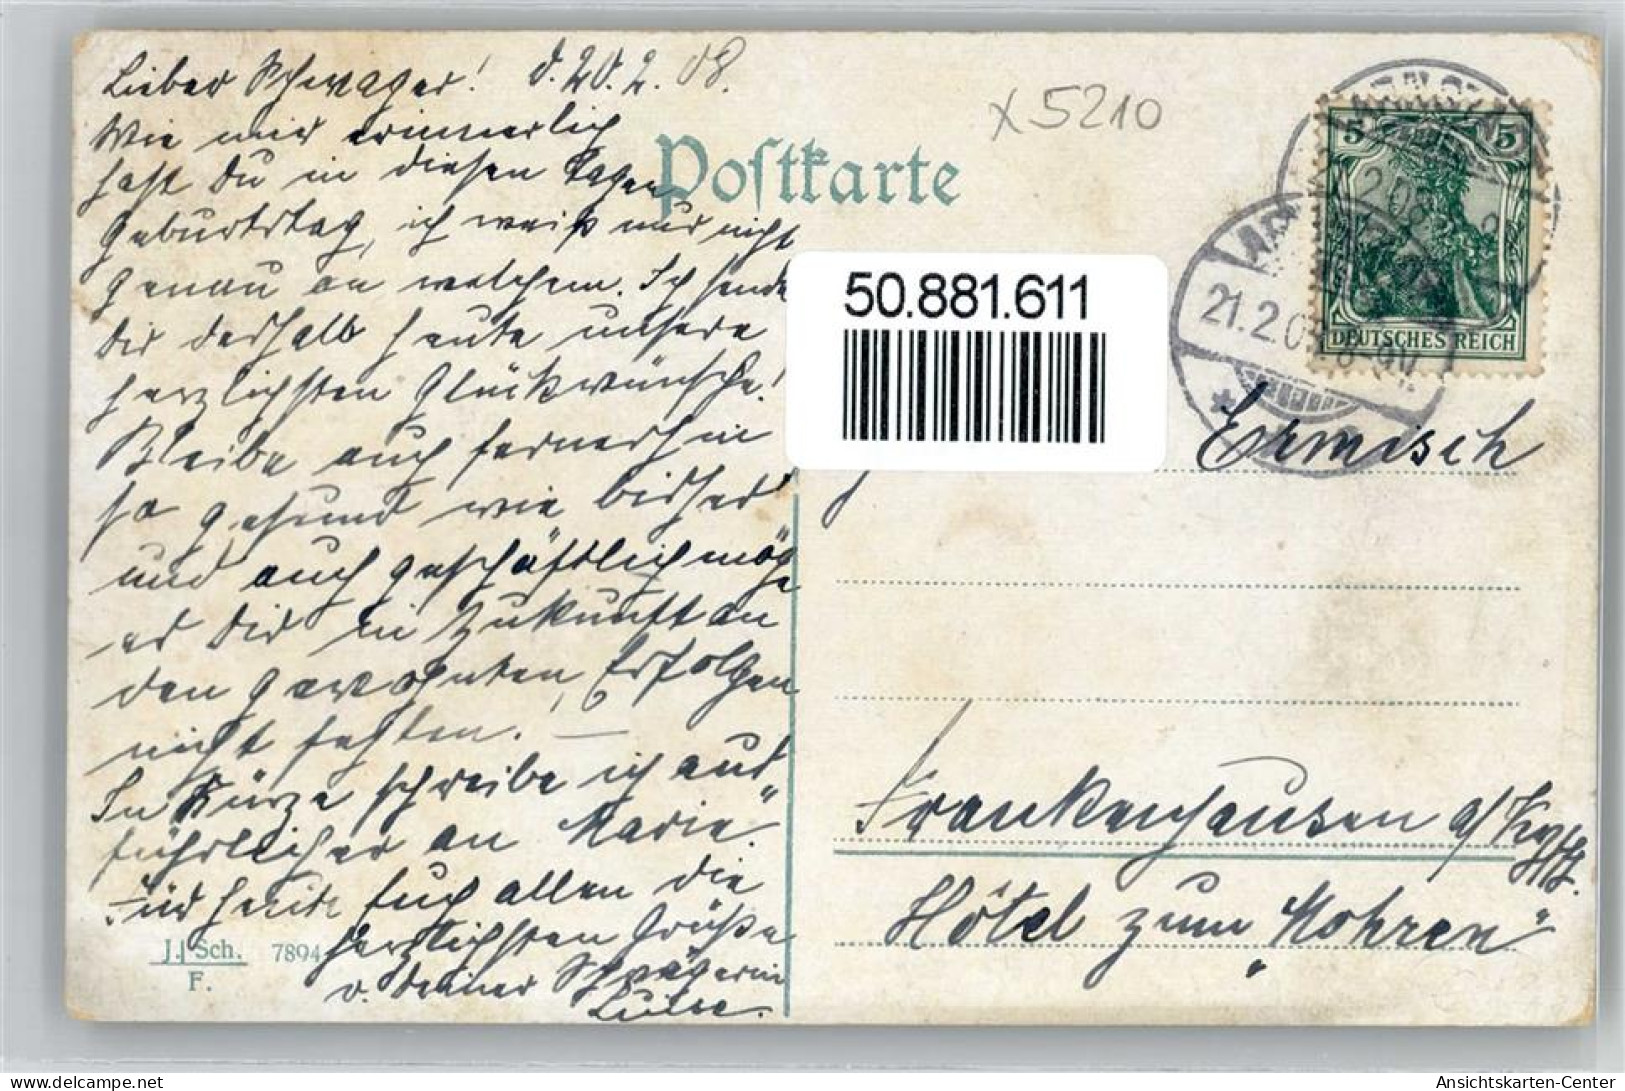 Lieber Schwager! d. 20.2.08.
Wie mir erinnerlich
hast Du in diesen Tagen
Geburtstag, ich weiß nur nicht
genau an welchem. Ich sende
Dir deshalb heute unsere
herzlichsten Glückwünsche!
Bleibe auch fernerhin
so gesund wie bisher
und auch geschäftlich möge
es Dir in Zukunft an
den gewohnten Erfolgen
nicht fehlen! —
In Kürze schreibe ich aus-
führlicher an Marie.
Für heute Euch allen die
herzlichsten Grüße
v. Deiner Schwägerin
Luise.
J. Sch. 7894
F.
x 5210
Postkarte
5 5
DEUTSCHES REICH
21.2.0
8-9V
50.881.611
Ermisch
Frankenhausen a/Kyffh.
Hôtel zum „Mohren"
Ansichtskarten-Center